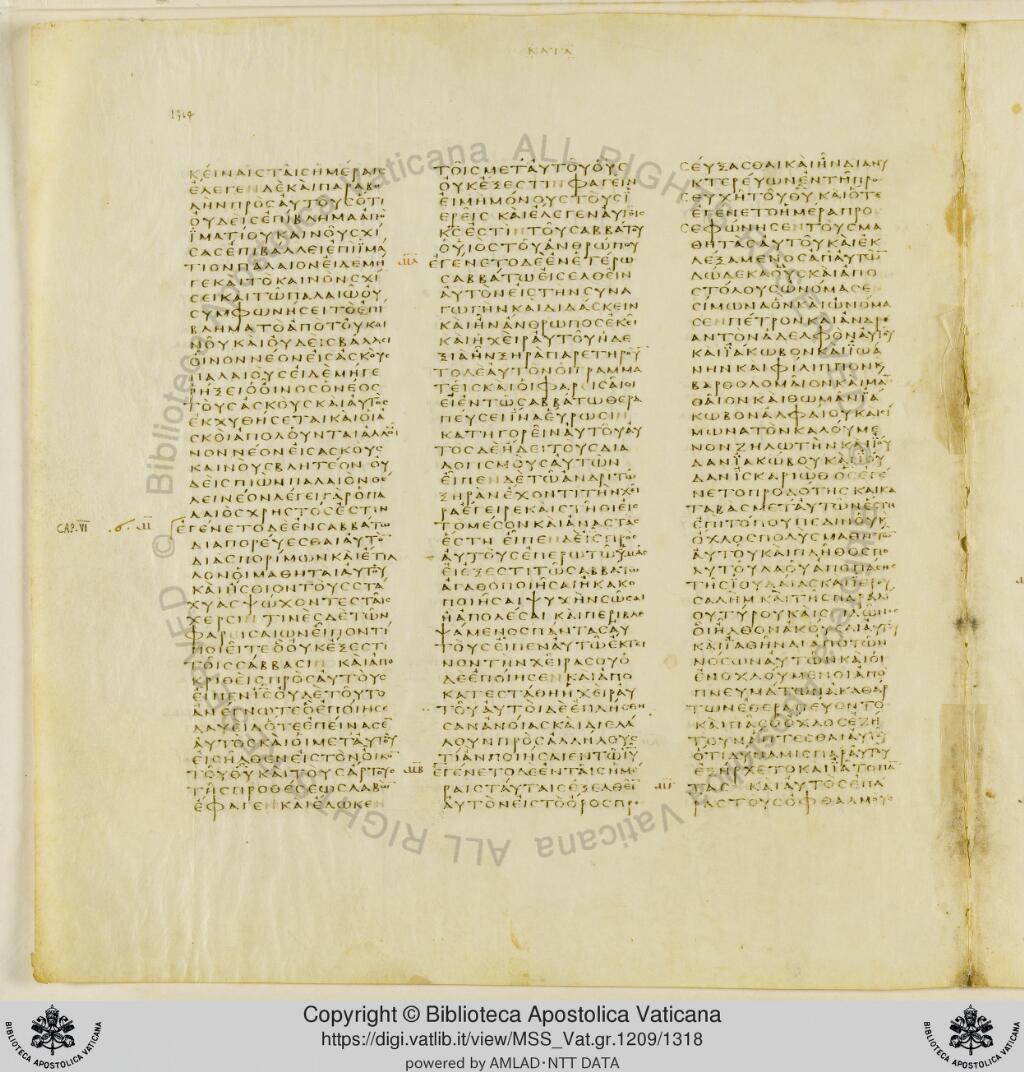 ΚΑΤΑ
1304
ΚΕΙΝΑΙΣΤΑΙΣΗΜΕΡΑΙΣ
ΕΛΕΓΕΝΔΕΚΑΙΠΑΡΑΒΟ
ΛΗΝΠΡΟΣΑΥΤΟΥΣΟΤΙ
ΟΥΔΕΙΣΕΠΙΒΛΗΜΑΑΠΟ
ΪΜΑΤΙΟΥΚΑΙΝΟΥΣΧΙ
ΣΑΣΕΠΙΒΑΛΛΕΙΕΠΙΪΜΑ
ΤΙΟΝΠΑΛΑΙΟΝΕΙΔΕΜΗ
ΓΕΚΑΙΤΟΚΑΙΝΟΝΣΧΙ
ΣΕΙΚΑΙΤΩΠΑΛΑΙΩΟΥ
ΣΥΜΦΩΝΗΣΕΙΤΟΕΠΙ
ΒΛΗΜΑΤΟΑΠΟΤΟΥΚΑΙ
ΝΟΥΚΑΙΟΥΔΕΙΣΒΑΛΛΕΙ
ΟΙΝΟΝΝΕΟΝΕΙΣΑΣΚΟΥΣ
ΠΑΛΑΙΟΥΣΕΙΔΕΜΗΓΕ
ΡΗΞΕΙΟΟΙΝΟΣΟΝΕΟΣ
ΤΟΥΣΑΣΚΟΥΣΚΑΙΑΥΤΟΣ
ΕΚΧΥΘΗΣΕΤΑΙΚΑΙΟΙΑ
ΣΚΟΙΑΠΟΛΟΥΝΤΑΙΑΛΛΑΟΙ
ΝΟΝΝΕΟΝΕΙΣΑΣΚΟΥΣ
ΚΑΙΝΟΥΣΒΛΗΤΕΟΝ ΟΥ
ΔΕΙΣΠΙΩΝΠΑΛΑΙΟΝΘΕ
ΛΕΙΝΕΟΝΛΕΓΕΙΓΑΡΟΠΑ
ΛΑΙΟΣΧΡΗΣΤΟΣΕΣΤΙΝ
CAP. VI
ΕΓΕΝΕΤΟΔΕΕΝΣΑΒΒΑΤΩ
ΔΙΑΠΟΡΕΥΕΣΘΑΙΑΥΤΟ
ΔΙΑΣΠΟΡΙΜΩΝΚΑΙΕΤΙΛ
ΛΟΝΟΙΜΑΘΗΤΑΙΑΥΤΟΥ
ΚΑΙΗΣΘΙΟΝΤΟΥΣΣΤΑ
ΧΥΑΣΨΩΧΟΝΤΕΣΤΑΙΣ
ΧΕΡΣΙΝΤΙΝΕΣΔΕΤΩΝ
ΦΑΡΕΙΣΑΙΩΝΕΙΠΟΝΤΙ
ΠΟΙΕΙΤΕΟΟΥΚΕΞΕΣΤΙ
ΤΟΙΣΣΑΒΒΑΣΙΝ ΚΑΙΑΠΟ
ΚΡΙΘΕΙΣΠΡΟΣΑΥΤΟΥΣ
ΕΙΠΕΝΙΣΟΥΔΕΤΟΥΤΟ
ΑΝΕΓΝΩΤΕΟΕΠΟΙΗΣΕ
ΔΑΥΕΙΔΟΤΕΕΠΕΙΝΑΣΕ
ΑΥΤΟΣΚΑΙΟΙΜΕΤΑΥΤΟΥ
ΕΙΣΗΛΘΕΝΕΙΣΤΟΝΟΙΚΟ
ΤΟΥΘΥΚΑΙΤΟΥΣΑΡΤΟΥΣ
ΤΗΣΠΡΟΘΕΣΕΩΣΛΑΒΩ
ΕΦΑΓΕΝΚΑΙΕΔΩΚΕΝ
ΤΟΙΣΜΕΤΑΥΤΟΥΟΥΣ
ΟΥΚΕΞΕΣΤΙΝΦΑΓΕΙΝ
ΕΙΜΗΜΟΝΟΥΣΤΟΥΣΪ
ΕΡΕΙΣ ΚΑΙΕΛΕΓΕΝΑΥΤΟΙΣ
ΚΣΕΣΤΙΝΤΟΥΣΑΒΒΑΤΟΥ
ΟΥΙΟΣΤΟΥΑΝΘΡΩΠΟΥ
ΕΓΕΝΕΤΟΔΕΕΝΕΤΕΡΩ
ΣΑΒΒΑΤΩΕΙΣΕΛΘΕΙΝ
ΑΥΤΟΝΕΙΣΤΗΝΣΥΝΑ
ΓΩΓΗΝΚΑΙΔΙΔΑΣΚΕΙΝ
ΚΑΙΗΝΑΝΘΡΩΠΟΣΕΚΕΙ
ΚΑΙΗΧΕΙΡΑΥΤΟΥΗΔΕ
ΞΙΑΗΝΞΗΡΑΠΑΡΕΤΗΡΟΥ
ΤΟΔΕΑΥΤΟΝΟΙΓΡΑΜΜΑ
ΤΕΙΣΚΑΙΟΙΦΑΡΕΙΣΑΙΟΙ
ΕΙΕΝΤΩΣΑΒΒΑΤΩΘΕΡΑ
ΠΕΥΣΕΙΙΝΑΕΥΡΩΣΙΝ
ΚΑΤΗΓΟΡΕΙΝΑΥΤΟΥΑΥ
ΤΟΣΔΕΗΔΕΙΤΟΥΣΔΙΑ
ΛΟΓΙΣΜΟΥΣΑΥΤΩΝ
ΕΙΠΕΝΔΕΤΩΑΝΔΡΙΤΩ
ΞΗΡΑΝΕΧΟΝΤΙΤΗΝΧΕΙ
ΡΑΕΓΕΙΡΕΚΑΙΣΤΗΘΙΕΙΣ
ΤΟΜΕΣΟΝΚΑΙΑΝΑΣΤΑΣ
ΕΣΤΗ ΕΙΠΕΝΔΕΙΣΠΡΟΣ
ΑΥΤΟΥΣΕΠΕΡΩΤΩΥΜΑΣ
ΕΙΕΞΕΣΤΙΤΩΣΑΒΒΑΤΩ
ΑΓΑΘΟΠΟΙΗΣΑΙΗΚΑΚΟ
ΠΟΙΗΣΑΙΨΥΧΗΝΣΩΣΑΙ
ΗΑΠΟΛΕΣΑΙ ΚΑΙΠΕΡΙΒΛΕ
ΨΑΜΕΝΟΣΠΑΝΤΑΣΑΥ
ΤΟΥΣΕΙΠΕΝΑΥΤΩΕΚΤΕΙ
ΝΟΝΤΗΝΧΕΙΡΑΣΟΥΟ
ΔΕΕΠΟΙΗΣΕΝΚΑΙΑΠΟ
ΚΑΤΕΣΤΑΘΗΗΧΕΙΡΑΥ
ΤΟΥΑΥΤΟΙΔΕΕΠΛΗΣΘΗ
ΣΑΝΑΝΟΙΑΣΚΑΙΔΙΕΛΑ
ΛΟΥΝΠΡΟΣΑΛΛΗΛΟΥΣ
ΤΙΑΝΠΟΙΗΣΑΙΕΝΤΩΙΥ
ΕΓΕΝΕΤΟΔΕΕΝΤΑΙΣΗΜΕ
ΡΑΙΣΤΑΥΤΑΙΣΕΞΕΛΘΕΙ
ΑΥΤΟΝΕΙΣΤΟΟΡΟΣΠΡΟ
ΣΕΥΞΑΣΘΑΙΚΑΙΗΝΔΙΑΝΥ
ΚΤΕΡΕΥΩΝΕΝΤΗΠΡΟ
ΣΕΥΧΗΤΟΥΘΥ ΚΑΙΟΤΕ
ΕΓΕΝΕΤΟΗΜΕΡΑΠΡΟ
ΣΕΦΩΝΗΣΕΝΤΟΥΣΜΑ
ΘΗΤΑΣΑΥΤΟΥΚΑΙΕΚ
ΛΕΞΑΜΕΝΟΣΑΠΑΥΤΩ
ΔΩΔΕΚΑΟΥΣΚΑΙΑΠΟ
ΣΤΟΛΟΥΣΩΝΟΜΑΣΕ
ΣΙΜΩΝΑΟΝΚΑΙΩΝΟΜΑ
ΣΕΝΠΕΤΡΟΝΚΑΙΑΝΔΡΕ
ΑΝΤΟΝΑΔΕΛΦΟΝΑΥΤΟΥ
ΚΑΙΪΑΚΩΒΟΝΚΑΙΪΩΑ
ΝΗΝΚΑΙΦΙΛΙΠΠΟΝΚ
ΒΑΡΘΟΛΟΜΑΙΟΝΚΑΙΜΑ
ΘΑΙΟΝΚΑΙΘΩΜΑΝΪΑ
ΚΩΒΟΝΑΛΦΑΙΟΥΚΑΙΣΙ
ΜΩΝΑΤΟΝΚΑΛΟΥΜΕ
ΝΟΝΖΗΛΩΤΗΝΚΑΙΪΟΥ
ΔΑΝΪΑΚΩΒΟΥΚΑΙΪΟΥ
ΔΑΝΙΣΚΑΡΙΩΘΟΣΕΓΕ
ΝΕΤΟΠΡΟΔΟΤΗΣΚΑΙΚΑ
ΤΑΒΑΣΜΕΤΑΥΤΩΝΕΣΤΗ
ΕΠΙΤΟΠΟΥΠΕΔΙΝΟΥΚ
ΟΧΛΟΣΠΟΛΥΣΜΑΘΗΤΩ
ΑΥΤΟΥΚΑΙΠΛΗΘΟΣΠΟ
ΛΥΤΟΥΛΑΟΥΑΠΟΠΑΣΗΣ
ΤΗΣΪΟΥΔΑΙΑΣΚΑΙΙΕΡΟΥ
ΣΑΛΗΜ ΚΑΙΤΗΣΠΑΡΑΛΙ
ΟΥΤΥΡΟΥΚΑΙΣΙΔΩΝΟΣ
ΟΙΗΛΘΟΝΑΚΟΥΣΑΙΑΥΤΟΥ
ΚΑΙΪΑΘΗΝΑΙΑΠΟΤΩΝ
ΝΟΣΩΝΑΥΤΩΝΚΑΙΟΙ
ΕΝΟΧΛΟΥΜΕΝΟΙΑΠΟ
ΠΝΕΥΜΑΤΩΝΑΚΑΘΑΡ
ΤΩΝΕΘΕΡΑΠΕΥΟΝΤΟ
ΚΑΙΠΑΣΟΟΧΛΟΣΕΖΗ
ΤΟΥΝΑΠΤΕΣΘΑΙΑΥΤΟΥ
ΟΤΙΔΥΝΑΜΙΣΠΑΡΑΥΤΟΥ
ΕΞΗΡΧΕΤΟΚΑΙΪΑΤΟΠΑ
ΤΑΣ ΚΑΙΑΥΤΟΣΕΠΑ
ΡΑΣΤΟΥΣΟΦΘΑΛΜΟΥΣ
Copyright © Biblioteca Apostolica Vaticana
https://digi.vatlib.it/view/MSS_Vat.gr.1209/1318
powered by AMLAD·NTT DATA